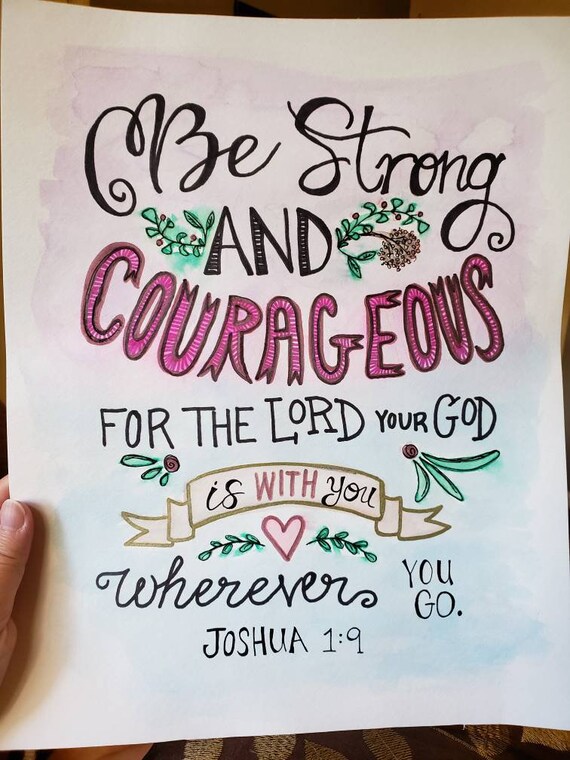 Be Strong
AND
COURAGEOUS
FOR THE LORD YOUR GOD
is WITH you
wherever YOU
GO.
JOSHUA 1:9